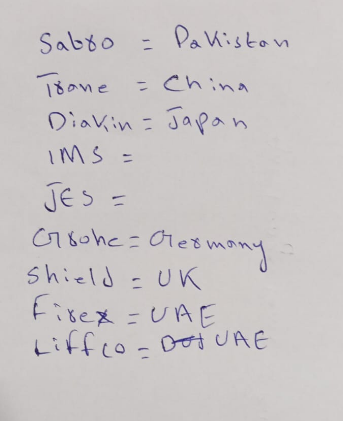 Sabro = Pakistan
Trane = China
Diakin = Japan
IMS =
JES =
Grohe = Germany =
Shield = UK
Firex = UAE
Liffco = UAE